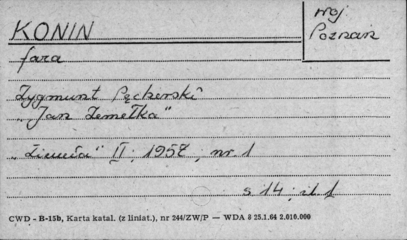 KONIN
woj
Poznań
fara
Zygmunt Pęcherski
"Jan Zemełka"
II, 1957, nr. 1
s 14, il. 1
CWD - B-15b, Karta katal. (z liniat.), nr 244/ZW/P — WDA 8 25.1.64 2.010.000